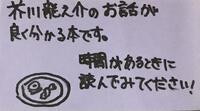 芥川龍之介のお話が
良く分かる本です。
時間があるときに
読んでみてください!